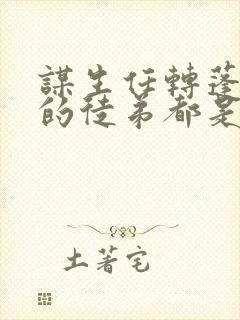 謀生任轉蓬
的徒弟都是
土著宅